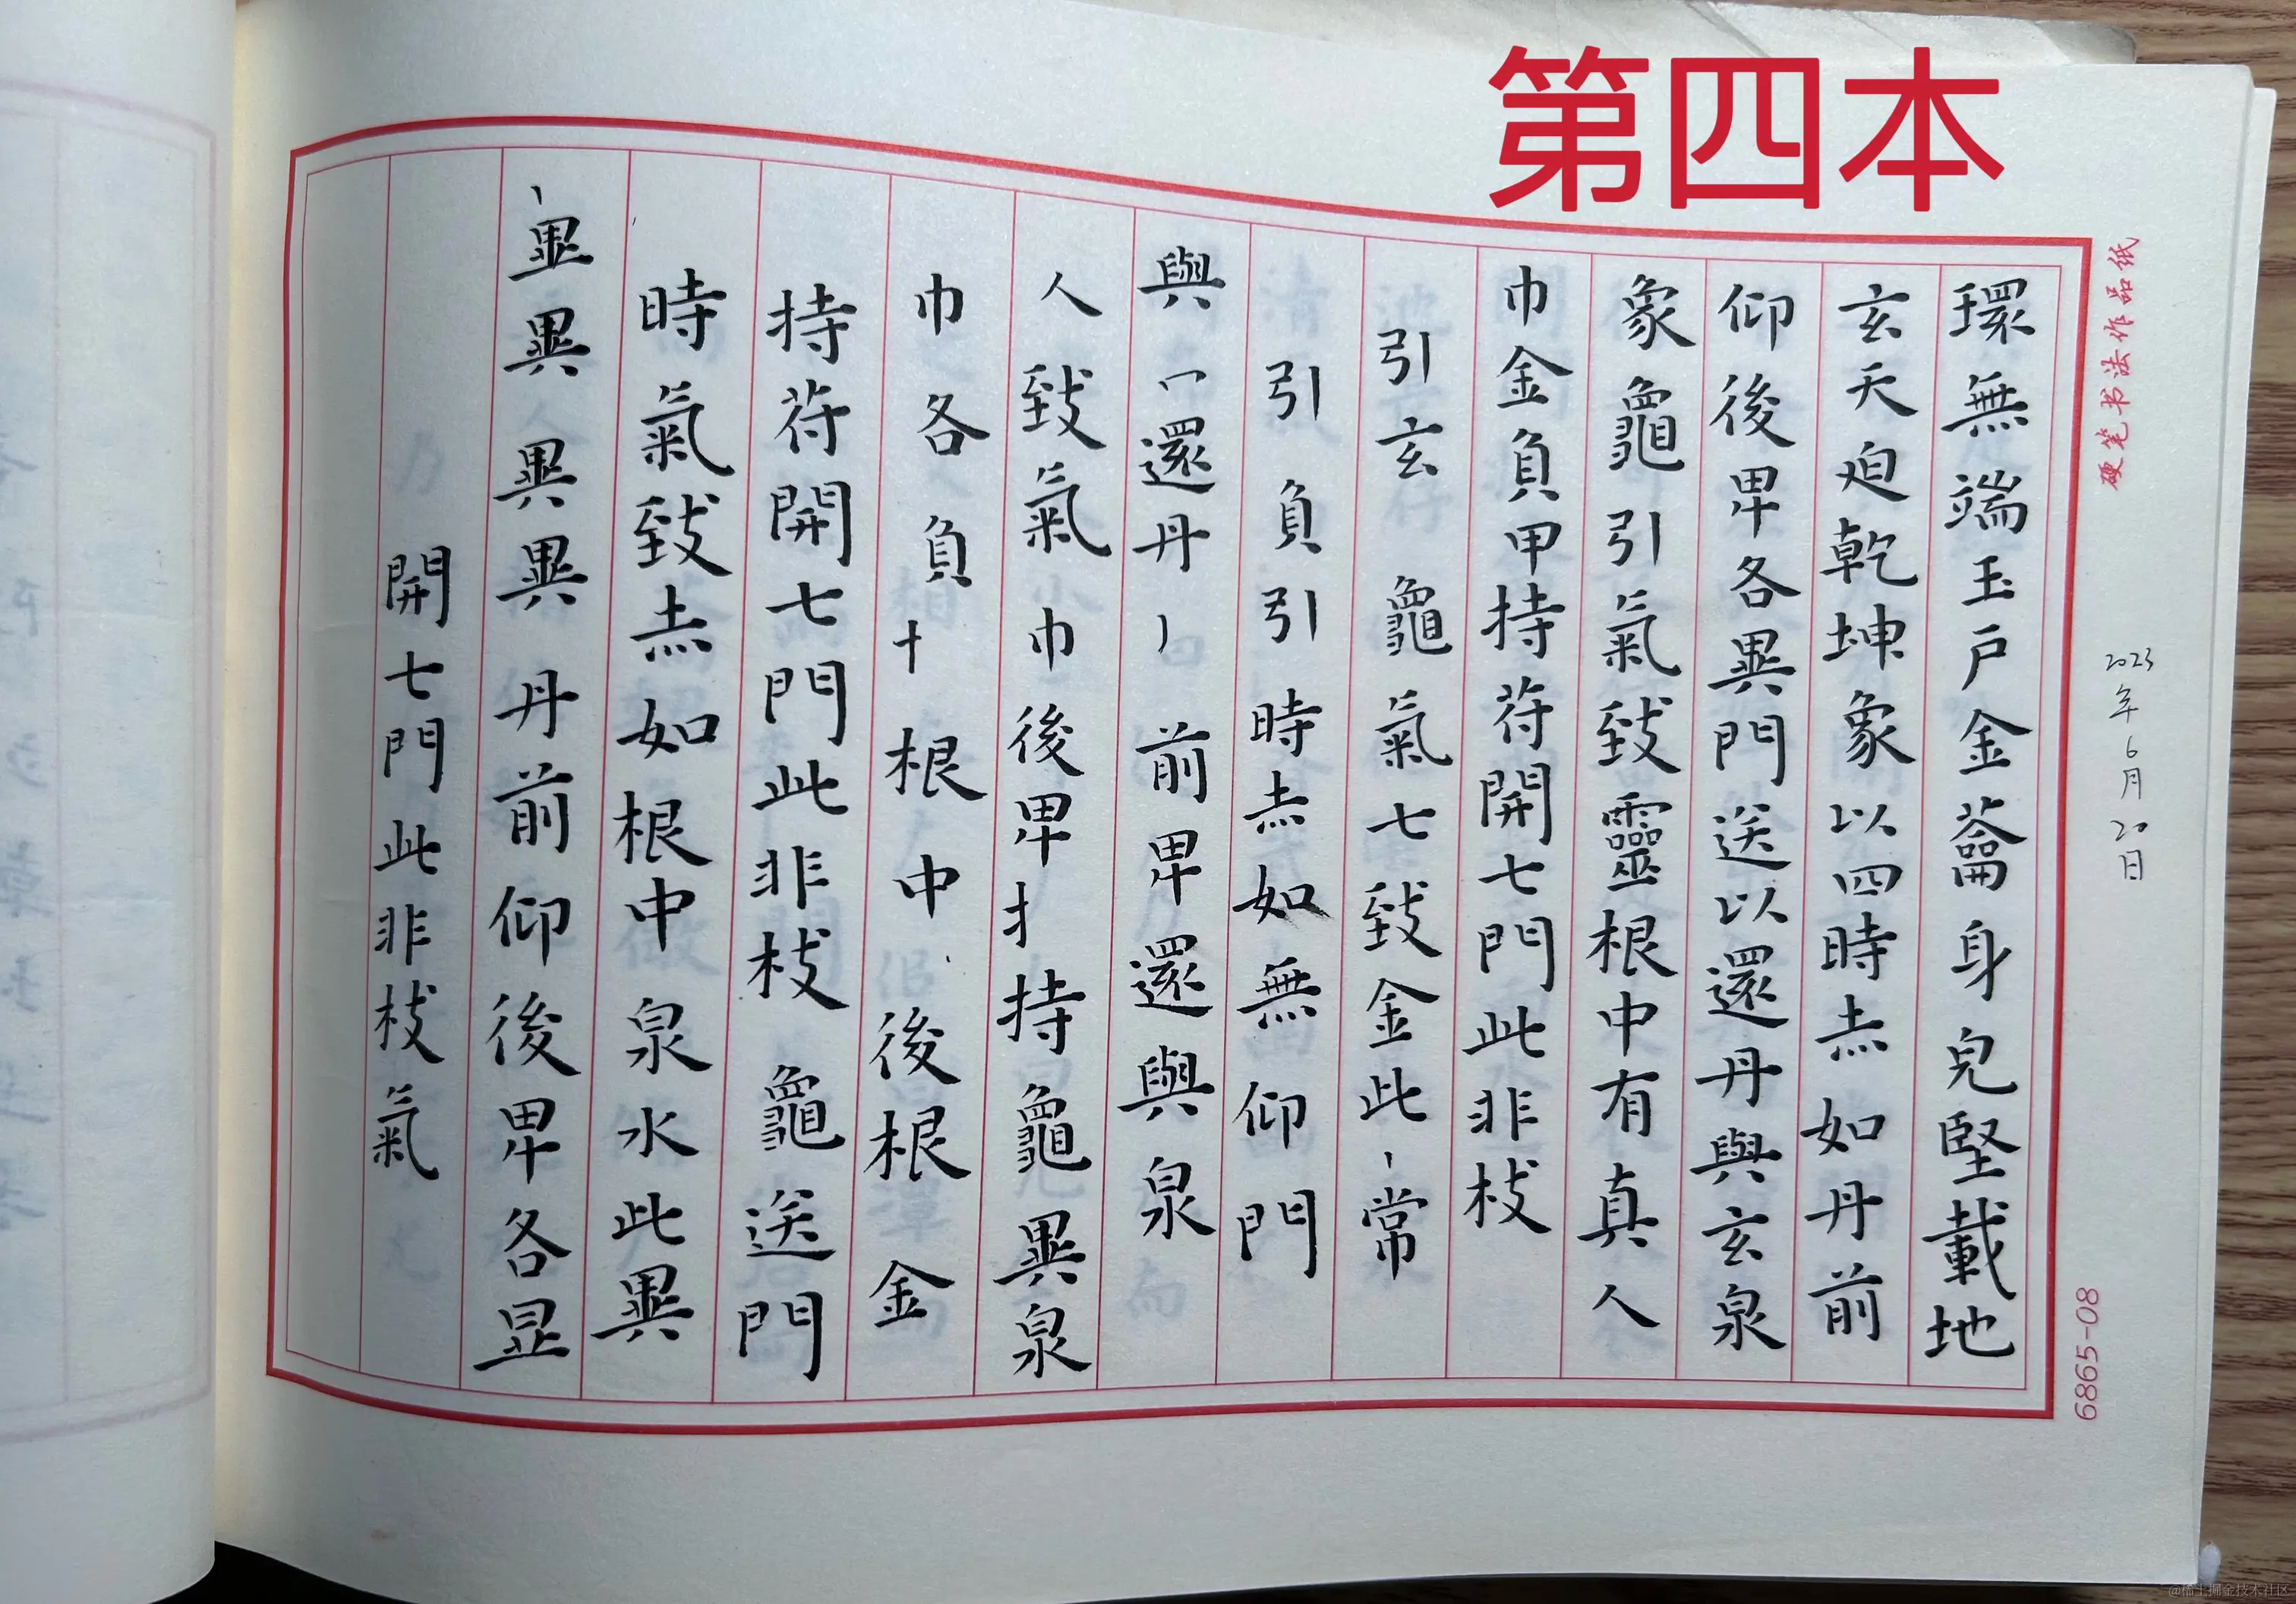 第四本
硬笔书法作品纸
2023年6月20日
6865-08
環無端玉戶金籥身皃堅載地
玄天迫乾坤象以四時赤如丹前
仰後卑各異門送以還丹與玄泉
象龜引氣致靈根中有真人
巾金負甲持苻開七門此非枝
引玄龜氣七致金此丶常
引負引時赤如無仰門
與冖還丹丿前卑還與泉
人致氣巾後卑扌持龜異泉
巾各負十根中後根金
持苻開七門此非枝龜送門
時氣致赤如根中泉水此異
異異異丹前仰後卑各
開七門此非枝氣
@稀土掘金技术社区